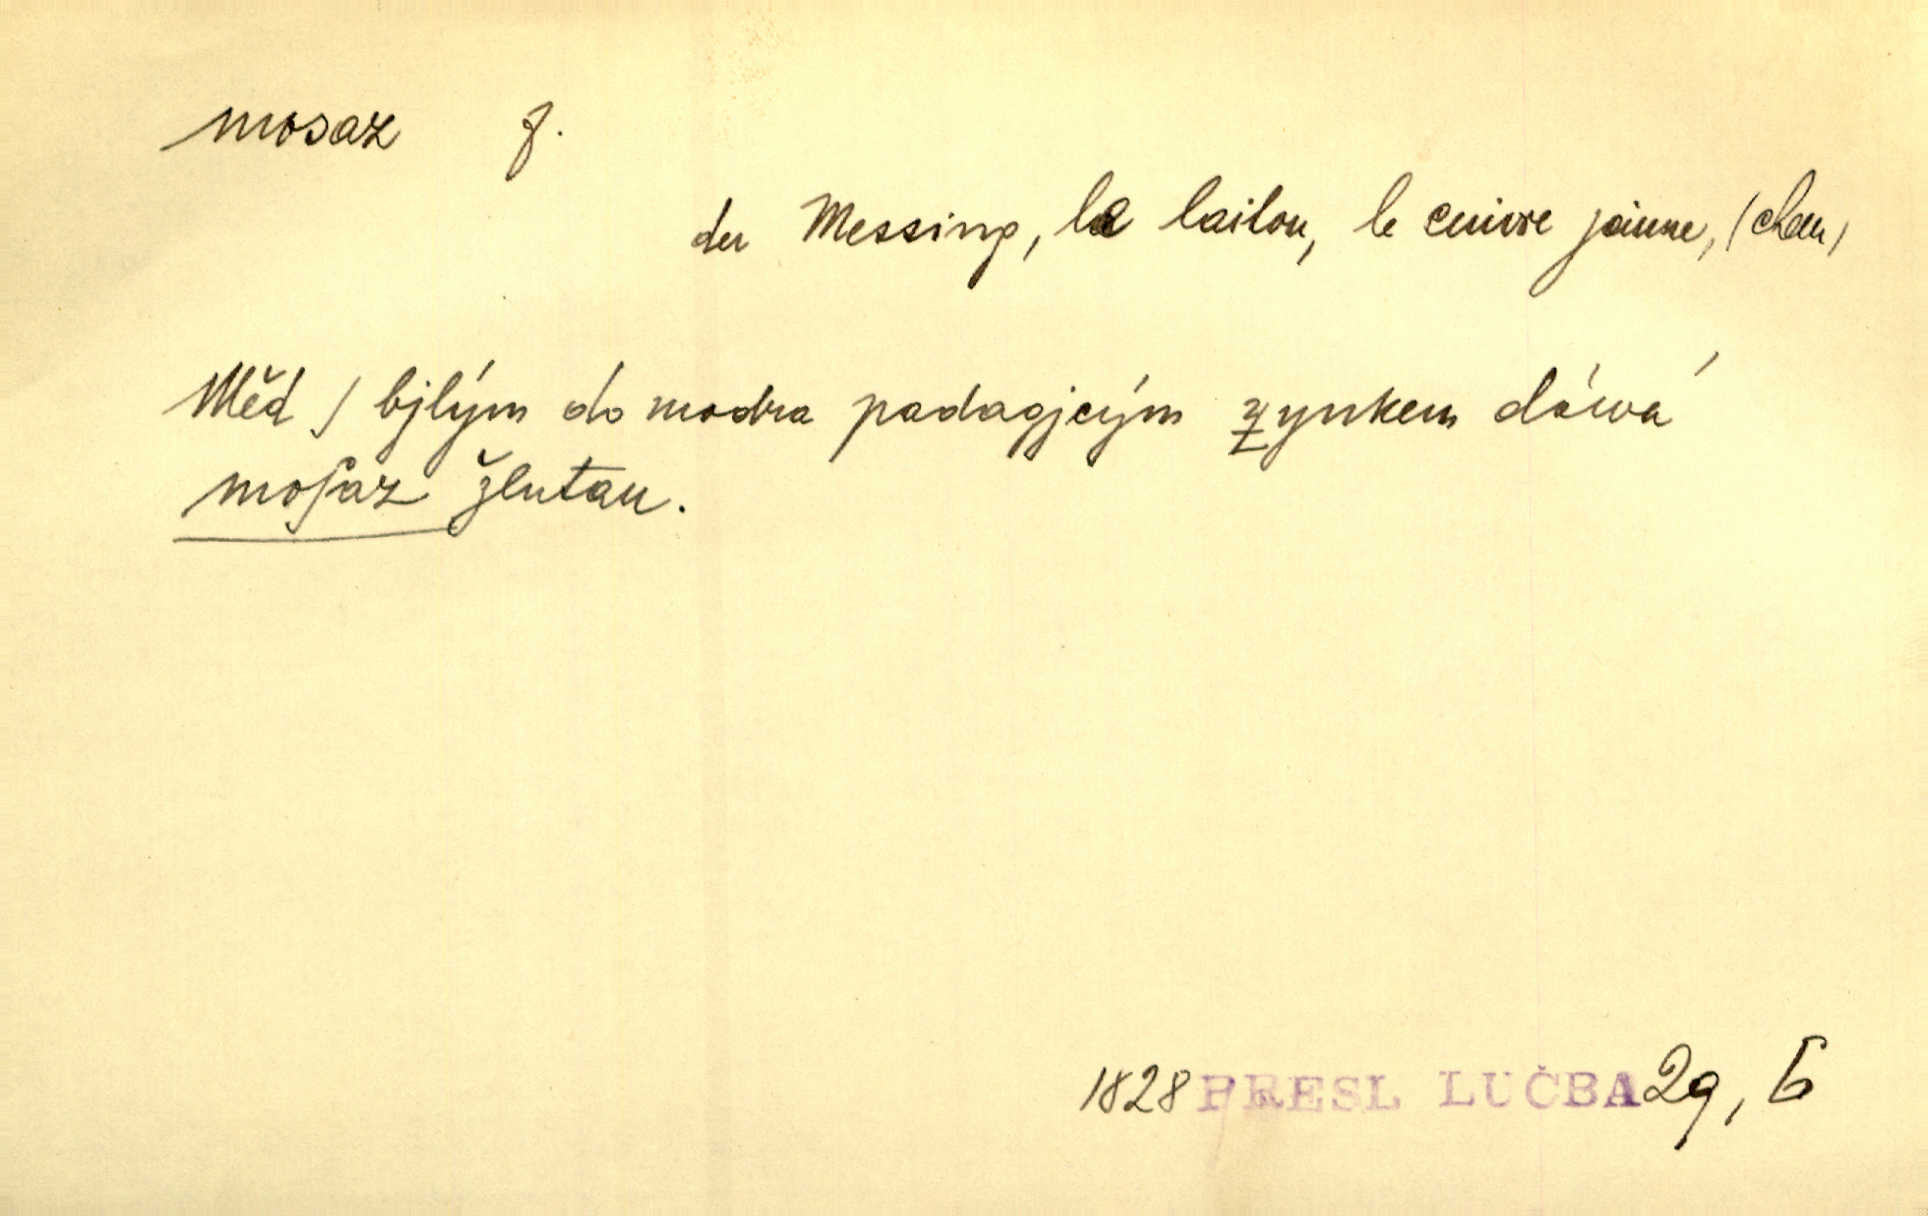 mosaz f.
der Messing, le laiton, le cuivre jaune, (chem)
Měd ſ bjlým do modra padagjcým zynkem dáwá
moſaz žlutau.
1828 PRESL LUČBA 29, 6